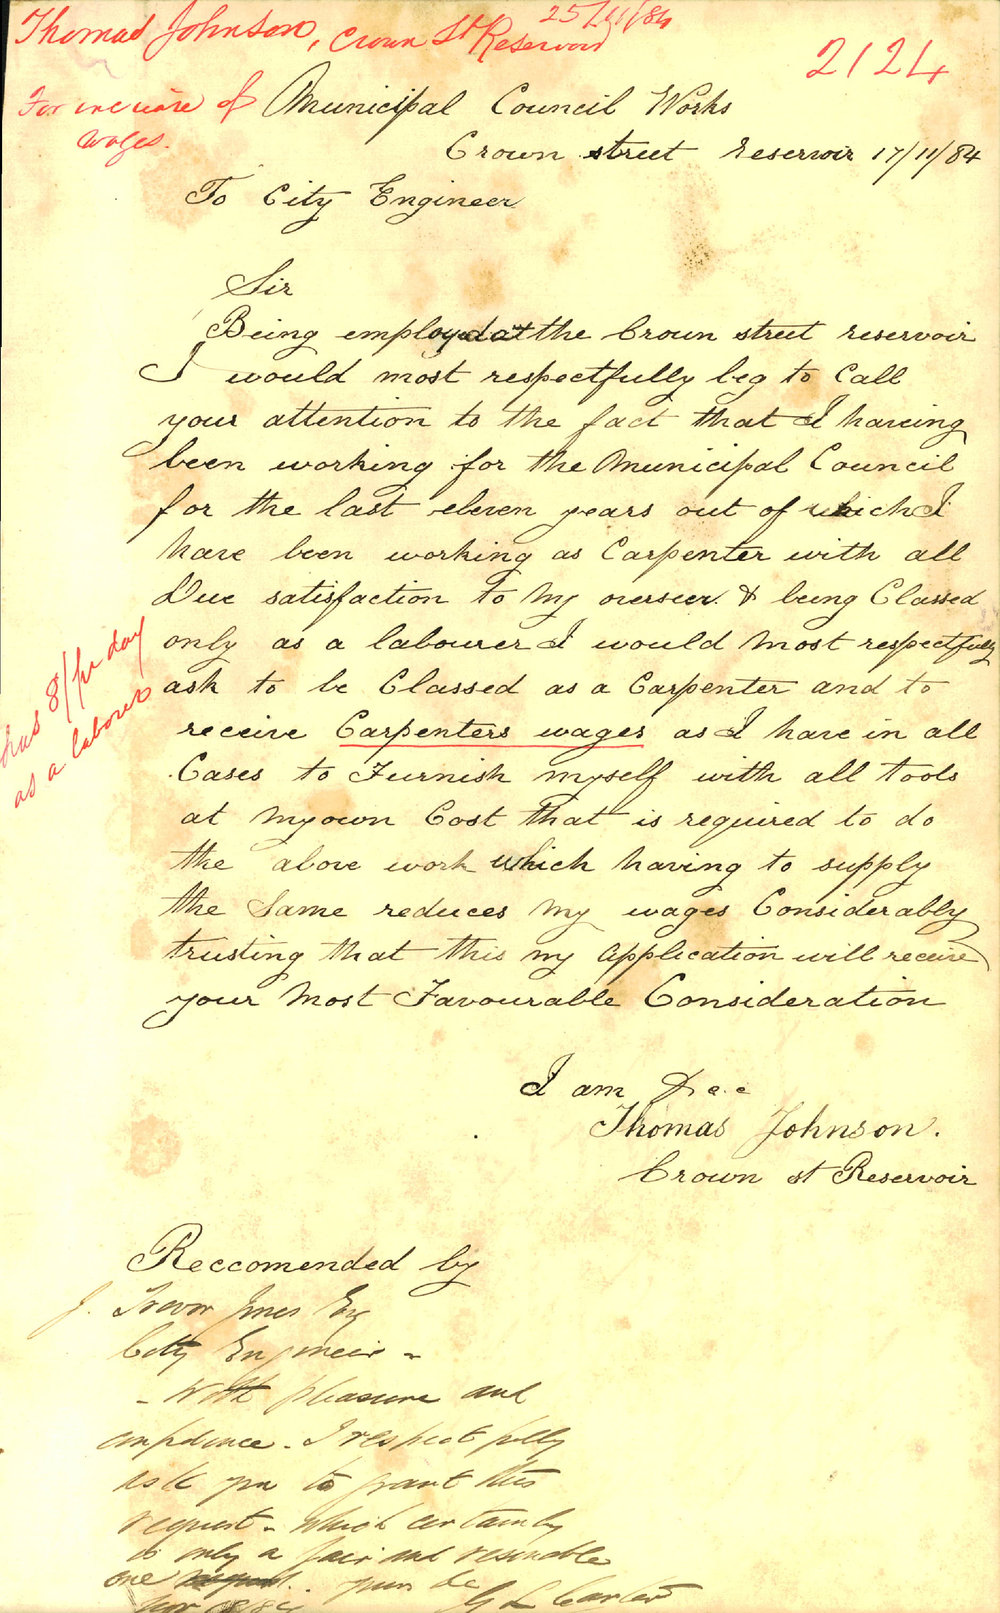 Thomas Johnson, Crown St Reservoir 25/11/84
2124
For increase of
wages.
Municipal Council Works
Crown street reservoir 17/11/84
To City Engineer
Sir
Being employed at the Crown street reservoir
I would most respectfully beg to Call
your attention to the fact that I having
been working for the Municipal Council
for the last eleven years out of which I
have been working as Carpenter with all
Due satisfaction to my overseer. & being Classed
only as a labourer I would most respectfully
ask to be Classed as a Carpenter and to
receive Carpenters wages as I have in all
Cases to Furnish myself with all tools
at my own Cost that is required to do
the above work which having to supply
the Same reduces my wages Considerably
trusting that this my application will receive
your most Favourable Consideration
has 8/ pr day
as a labourer
I am &c.c
Thomas Johnson.
Crown st Reservoir
Reccomended by
J. Trevor Jones Esq
City Engineer -
- With pleasure and
confidence. I respectfully
ask you to grant this
request - which certainly
is only a fair and resonable
one yours &c